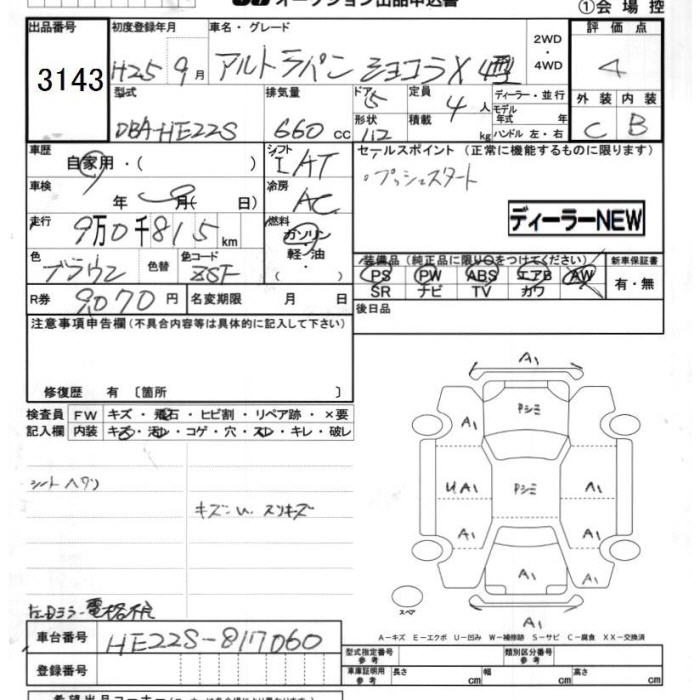 オークション出品申込書
①会場控
出品番号
3143
初度登録年月
H25 9月
車名・グレード
アルトラパン ショコラX
2WD
・
4WD
評価点
4
型式
DBA-HE22S
排気量
660 cc
ドア
5
形状
定員
4人
積載
kg
ディーラー・並行
モデル年式 年
ハンドル 左・右
外装 内装
C B
車歴
自家用・( )
シフト
IAT
セールスポイント (正常に機能するものに限ります)
・プッシュスタート
車検
年 月( 日)
冷房
AC
ディーラーNEW
走行
9万0千815km
燃料
ガソリン
軽油
・
色
ブラウン
色替
色コード
ZSF
装備品(純正品に限り○をつけてください)
PS PW ABS エアB AW
SR ナビ TV カワ
新車保証書
有・無
R券
9070円
名変期限 月 日
後日品
注意事項申告欄(不具合内容等は具体的に記入して下さい)
修復歴 有 〔箇所 〕
検査員
記入欄
FW キズ・飛石・ヒビ割・リペア跡・×要
内装 キズ・汚れ・コゲ・穴・スレ・キレ・破レ
シートヘタリ
キズ・U、スリキズ
左Dミラー電格不
A1
Pシミ
A1 A1
UA1 Pシミ A1
A1 A1
A1
A1
スペア
A-キズ E-エクボ U-凹み W-補修跡 S-サビ C-腐食 XX-交換済
車台番号
HE22S-817060
登録番号
型式指定番号
参考
類別区分番号
参考
車庫証明用
参考
長さ cm
幅 cm
高さ cm